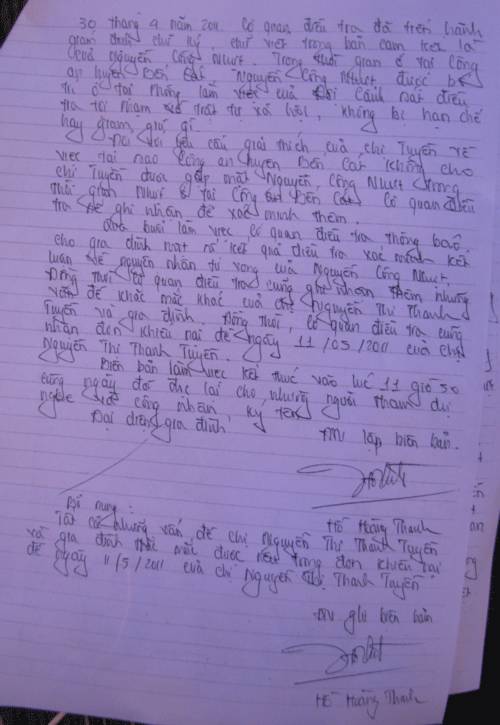 30 tháng 4 năm 2011. Cơ quan điều tra đã tiến hành
giám định chữ ký, chữ viết trong bản cam kết là
của Nguyễn Công Nhựt. Trong thời gian ở tại Công
an huyện Bến Cát Nguyễn Công Nhựt được bố
trí ở tại phòng làm việc của Đội Cảnh sát điều
tra tội phạm về trật tự xã hội, không bị hạn chế
hay giam, giữ gì.
Đối với yêu cầu giải thích của chị Tuyền về
việc tại sao Công an huyện Bến Cát không cho
chị Tuyền được gặp mặt Nguyễn Công Nhựt trong
thời gian Nhựt ở tại Công an Bến Cát. Cơ quan điều
tra sẽ ghi nhận để xác minh thêm.
buổi làm việc cơ quan điều tra thông báo
cho gia đình Nhựt rõ kết quả điều tra xác minh kết
luận về nguyên nhân tử vong của Nguyễn Công Nhựt.
Đồng thời cơ quan điều tra cũng ghi nhận thêm những
vấn đề khác của chị Nguyễn Thị Thanh
Tuyền và gia đình. Đồng thời, cơ quan điều tra cũng
nhận đơn khiếu nại đề ngày 11/05/2011 của chị
Nguyễn Thị Thanh Tuyền.
Biên bản làm việc kết thúc vào lúc 11 giờ 50
cùng ngày đọc lại cho những người tham dự
nghe và công nhận, ký tên
Đại diện gia đình
ĐTV lập biên bản.
Hồ Hoàng Thanh
Bổ sung:
Tất cả những vấn đề chị Nguyễn Thị Thanh Tuyền
và gia đình thắc mắc được nêu trong đơn khiếu nại
đề ngày 11/5/2011 của chị Nguyễn Thị Thanh Tuyền
ĐTV ghi biên bản
Hồ Hoàng Thanh